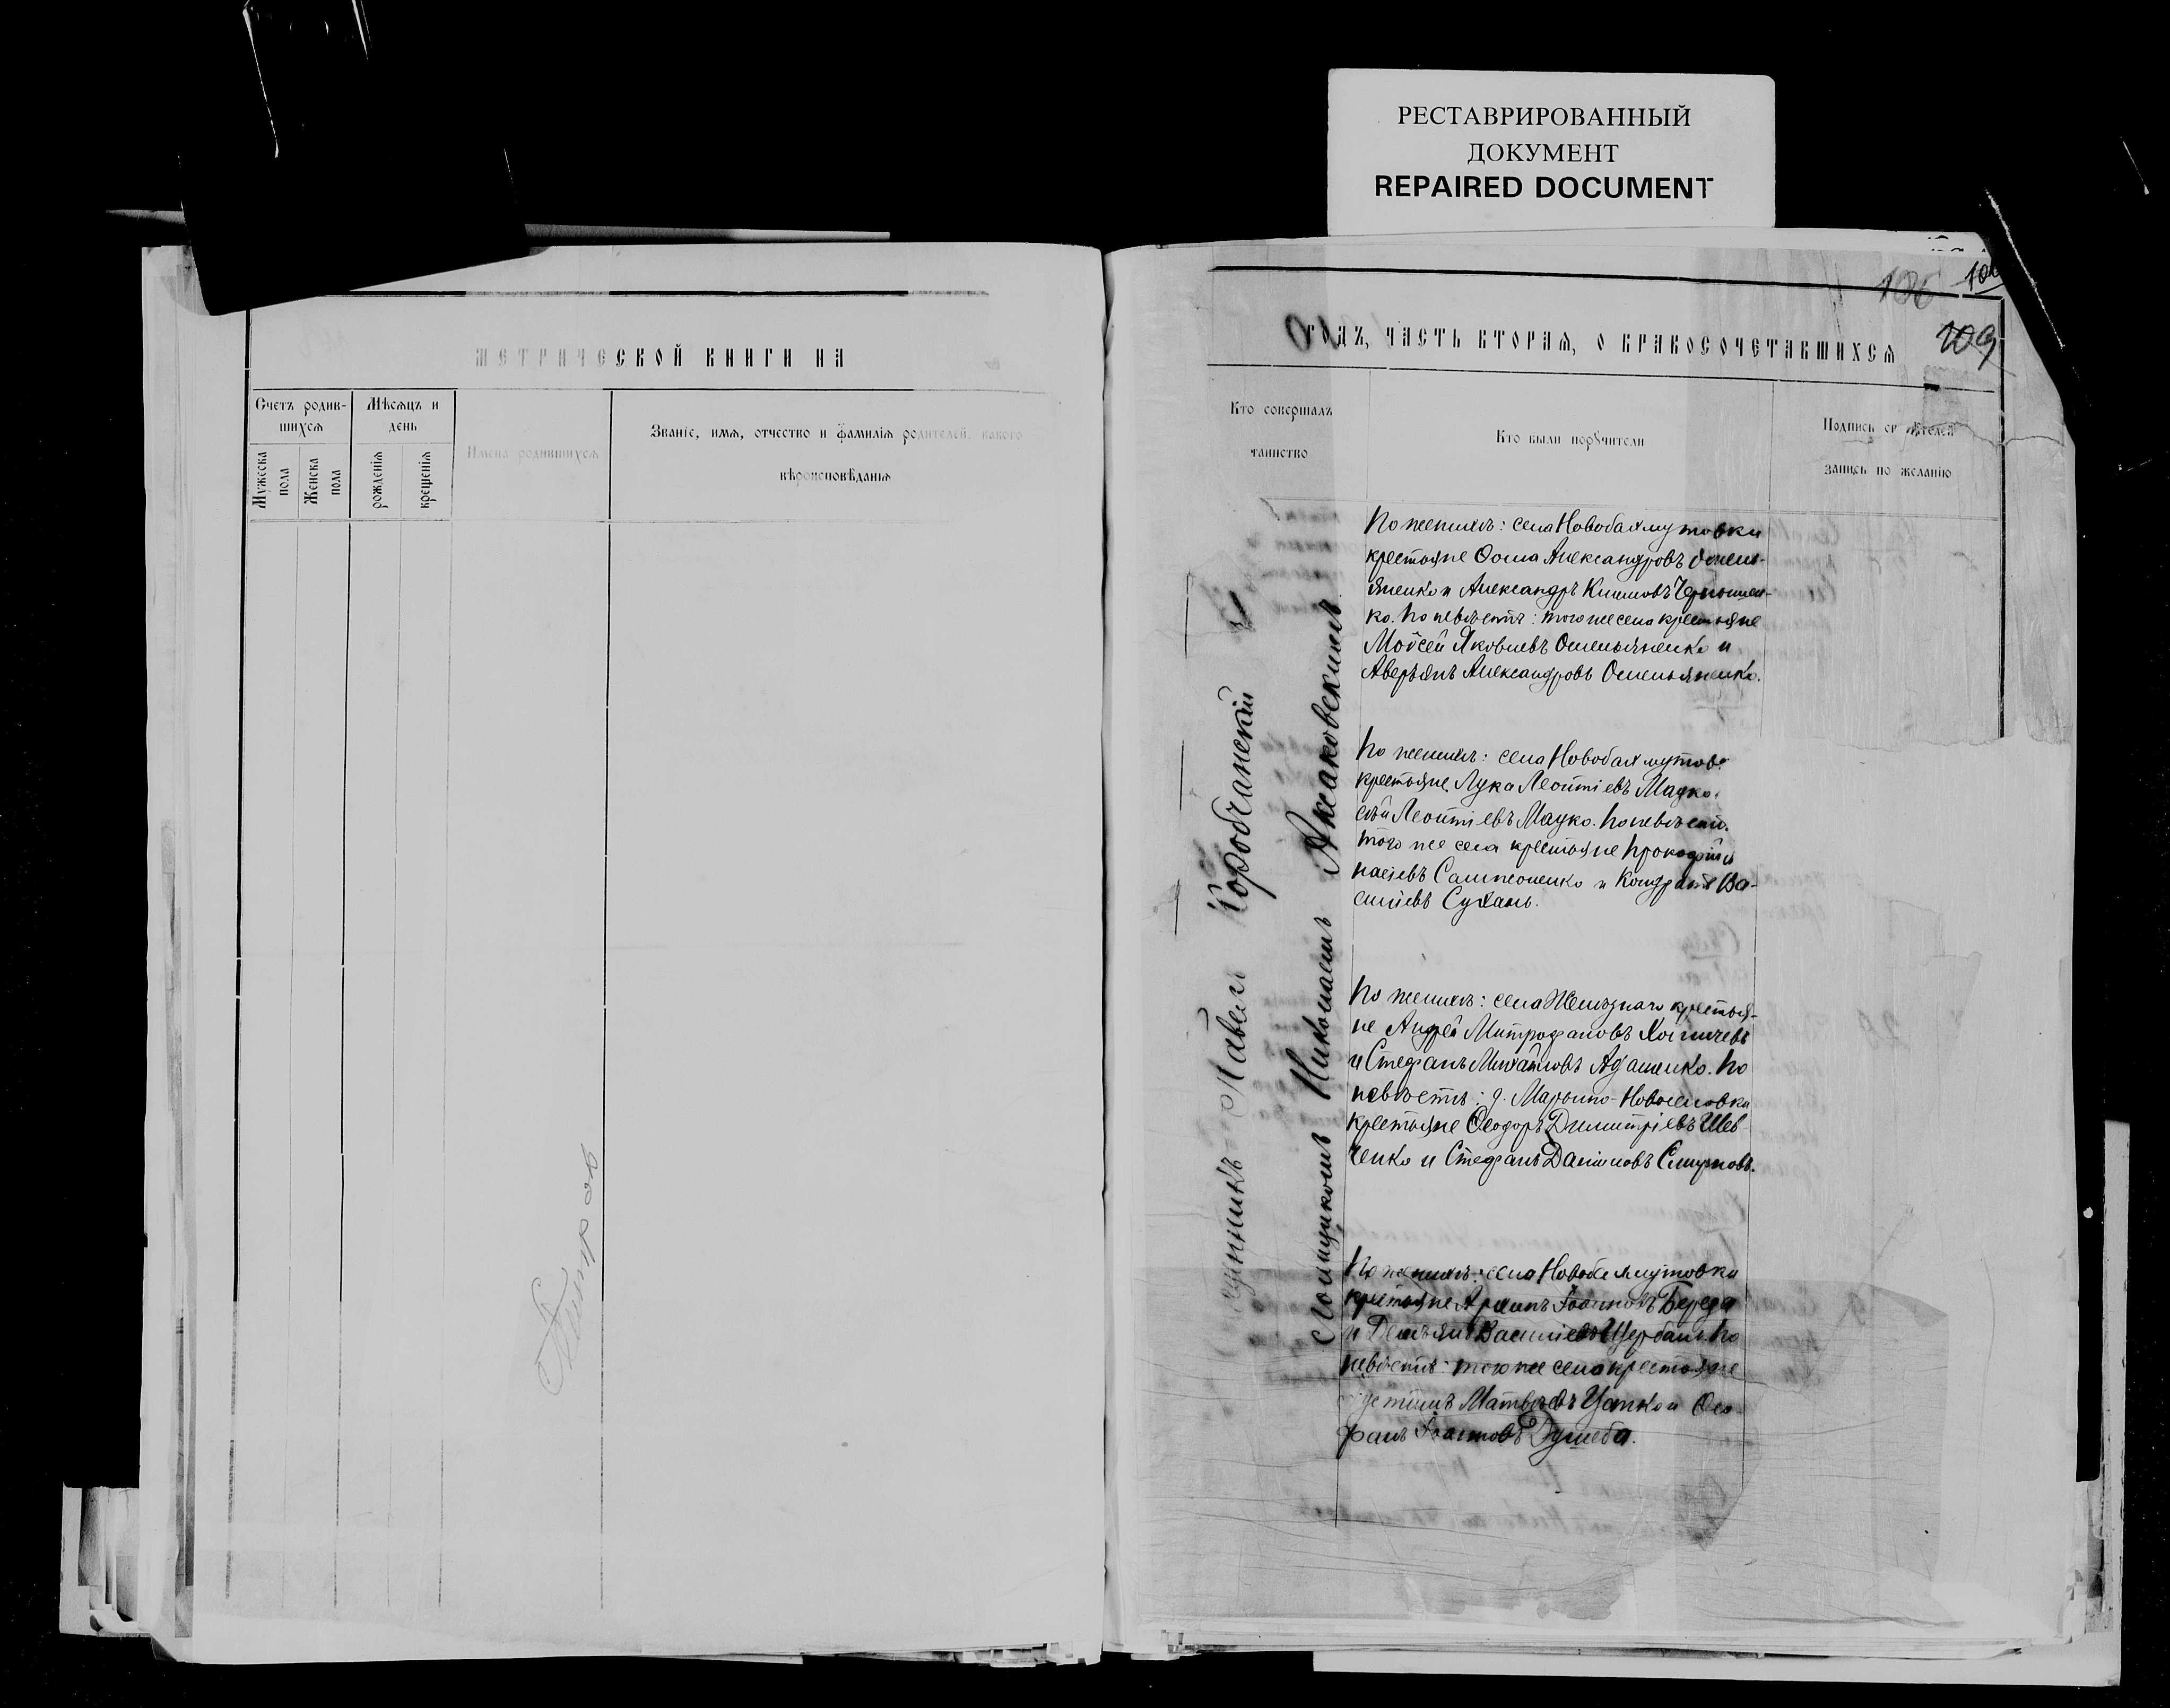 РЕСТАВРИРОВАННЫЙ
ДОКУМЕНТ
REPAIRED DOCUMENT
МЕТРИЧЕСКОЙ КНИГИ НА
Счетъ родив-
шихся
Мѣсяцъ и
день
Имена родившихся
Званіе, имя, отчество и фамилія родителей, какого
вѣроисповѣданія
Мужеска
пола
Женска
пола
рожденія
крещенія
106
109
ГОДЪ, ЧАСТЬ ВТОРАЯ, О БРАКОСОЧЕТАВШИХСЯ
Кто совершалъ
таинство
Кто были поручители
Подпись
запись по желанію
Павелъ Коробчанскій
Николаемъ Аксаковскимъ
По женихѣ: села Новобахмутовки
крестьяне Ѳома Александровъ Омель-
яненко и Александръ Климовъ
ко. По невѣстѣ: того же села крестьяне
Мойсей Яковлевъ Омельяненко и
Аверьянъ Александровъ Омельяненко.
По женихѣ: села Новобахмутов
крестьяне Лука Леонтіевъ Мацко
Леонтіевъ Мацко. По невѣст.
того же села крестьяне Прокофій
Сампсоненко и Кондратъ Ва-
силіевъ Сухань.
По женихѣ: села Желѣзнаго крестья-
не Андрей Митрофановъ
и Стефанъ Михайловъ Адаменко. По
невѣстѣ: д. Марьино-Новоселовки
крестьяне Ѳеодоръ Димитріевъ Шев
ченко и Стефанъ Даніиловъ Смирновъ.
По женихѣ: села Новобахмутовки
крестьяне Архипъ Іоанновъ Береда
и Демьянъ Василіевъ Щербань. По
невѣстѣ: того же села крестьяне
Матвѣевъ и Ѳео
фанъ Іоанновъ